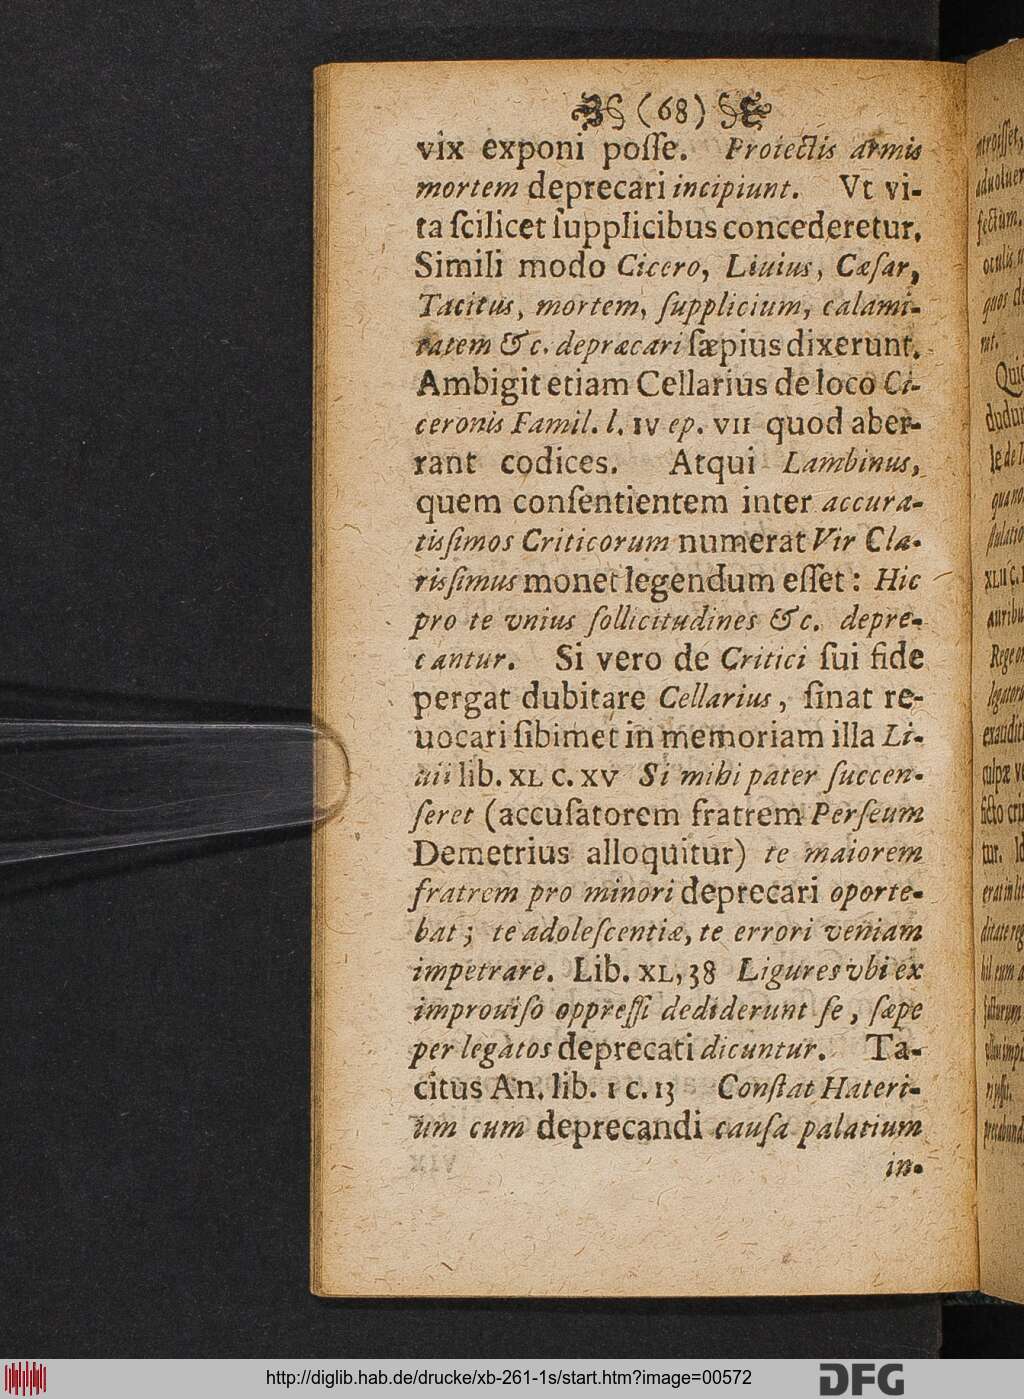 (68)
vix exponi poſſe. Proiectis armis
mortem deprecari incipiunt. Vt vi-
ta ſcilicet ſupplicibus concederetur.
Simili modo Cicero, Liuius, Cæſar,
Tacitus, mortem, ſupplicium, calami-
tatem &c. depræcari ſæpius dixerunt.
Ambigit etiam Cellarius de loco Ci-
ceronis Famil. l. IV ep. VII quod aber-
rant codices. Atqui Lambinus,
quem conſentientem inter accura-
tisſimos Criticorum numerat Vir Cla-
risſimus monet legendum eſſet: Hic
pro te vnius ſollicitudines &c. depre-
cantur. Si vero de Critici ſui fide
pergat dubitare Cellarius, ſinat re-
uocari ſibimet in memoriam illa Li-
uii lib. XL C. XV Si mihi pater ſuccen-
ſeret (accuſatorem fratrem Perſeum
Demetrius alloquitur) te maiorem
fratrem pro minori deprecari oporte-
bat; te adoleſcentiæ, te errori veniam
impetrare. Lib. XL, 38 Ligures vbi ex
improuiſo oppreſſi dediderunt ſe, ſæpe
per legatos deprecati dicuntur. Ta-
citus An. lib. I C. 13 Conſtat Hateri-
um cum deprecandi cauſa palatium
in-
http://diglib.hab.de/drucke/xb-261-1s/start.htm?image=00572
DFG